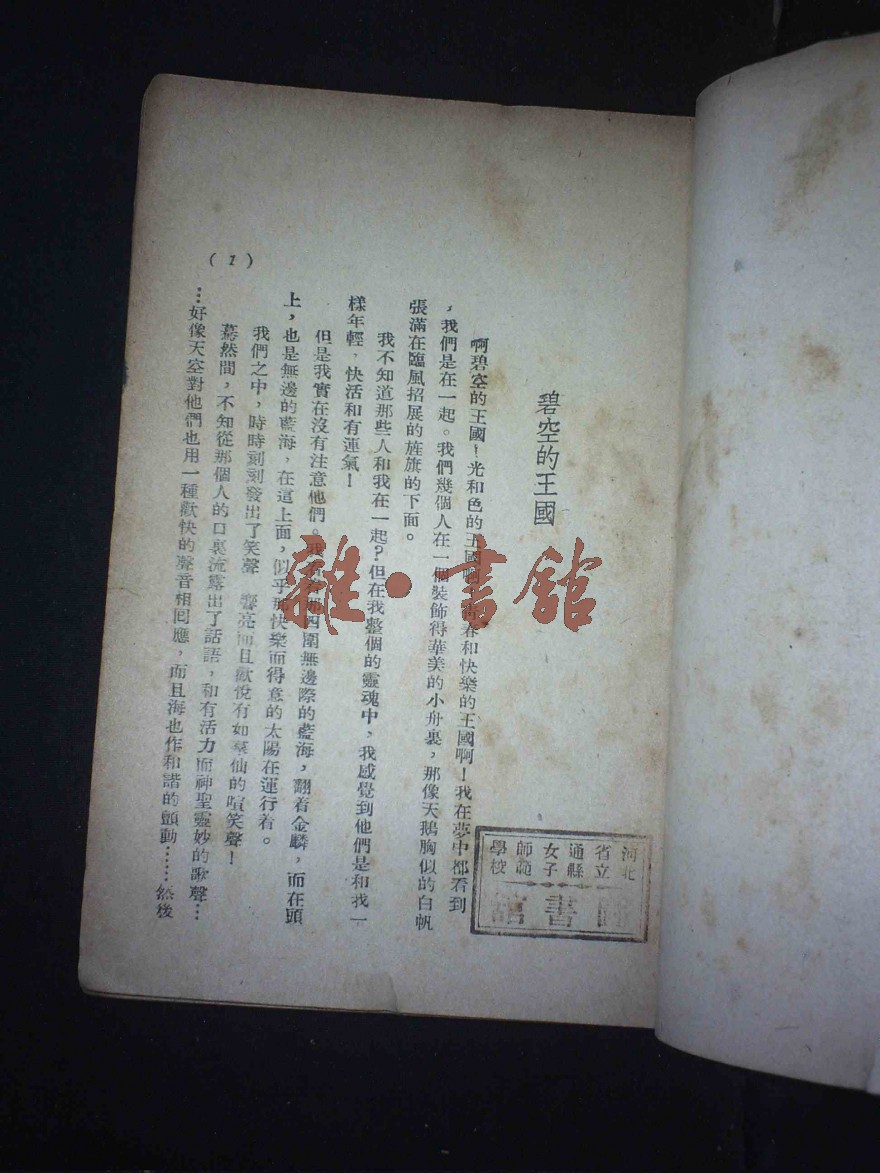 碧空的王國
啊碧空的王國!光和色的王國啊!青春和快樂的王國啊!我在夢中都看到
,我們是在一起。我們幾個人在一個裝飾得華美的小舟裏,那像天鵝胸似的白帆
張滿在臨風招展的旌旗的下面。
我不知道那些人和我在一起?但在我整個的靈魂中,我感覺到他們是和我一
樣年輕,快活和有運氣!
但是我實在沒有注意他們。我看着那四圍無邊際的藍海,翻着金鱗,而在頭
上,也是無邊的藍海,在這上面,似乎那快樂而得意的太陽在運行着。
我們之中,時時刻刻發出了笑聲 響亮而且歡悅有如羣仙的喧笑聲!
驀然間,不知從那個人的口裏流露出了話語,和有活力而神聖靈妙的歌聲…
…好像天空對他們也用一種歡快的聲音相回應,而且海也作和諧的顫動……然後
(1)
河北
省立
通縣
女子
師範
學校
圖書館
雜·書館